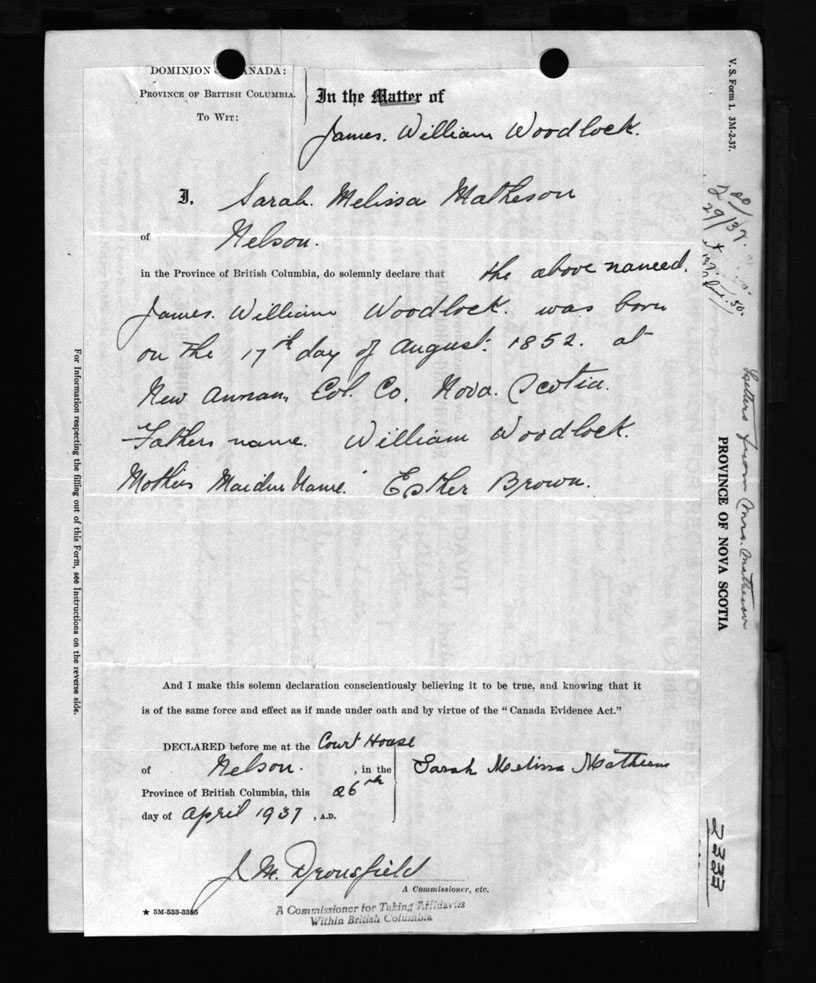 DOMINION CANADA:
PROVINCE OF BRITISH COLUMBIA.
TO WIT:
In the Matter of
James. William Woodlock.
I, Sarah. Melissa Matheson
of Nelson.
in the Province of British Columbia, do solemnly declare that the above named.
James. William Woodlock. was born
on the 17th day of August. 1852. at
New Annan, Col. Co. Nova. Scotia.
Fathers name. William Woodlock.
Mothers Maiden Name. Esther Brown.
And I make this solemn declaration conscientiously believing it to be true, and knowing that it
is of the same force and effect as if made under oath and by virtue of the "Canada Evidence Act."
DECLARED before me at the Court House
of Nelson. , in the
Province of British Columbia, this 26th
day of April 1937 , A.D.
Sarah Melissa Matheson
J. M. Dronsfield
A Commissioner, etc.
A Commissioner for Taking Affidavits
Within British Columbia
★ 5M-533-3386
For Information respecting the filling out of this Form, see Instructions on the reverse side.
V. S. Form 1. 3M-2-37.
29/37.
Letters from Mrs. Matheson
PROVINCE OF NOVA SCOTIA
2333